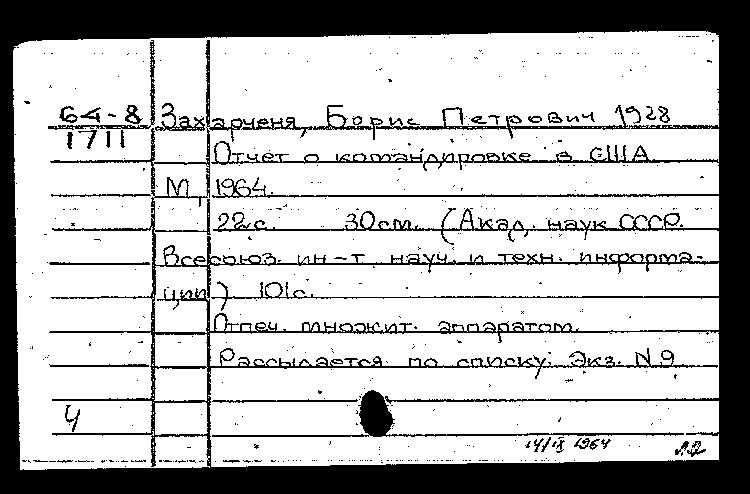 64-8 Захарченя, Борис Петрович 1928
1711
Отчет о командировке в США.
М, 1964.
22с. 30см. (Акад. наук СССР.
Всесоюз. ин-т науч. и техн. информа-
ции) 101с.
Отпеч. множит. аппаратом.
Рассылается по списку. Экз. N9
Ч
14/IX 1964